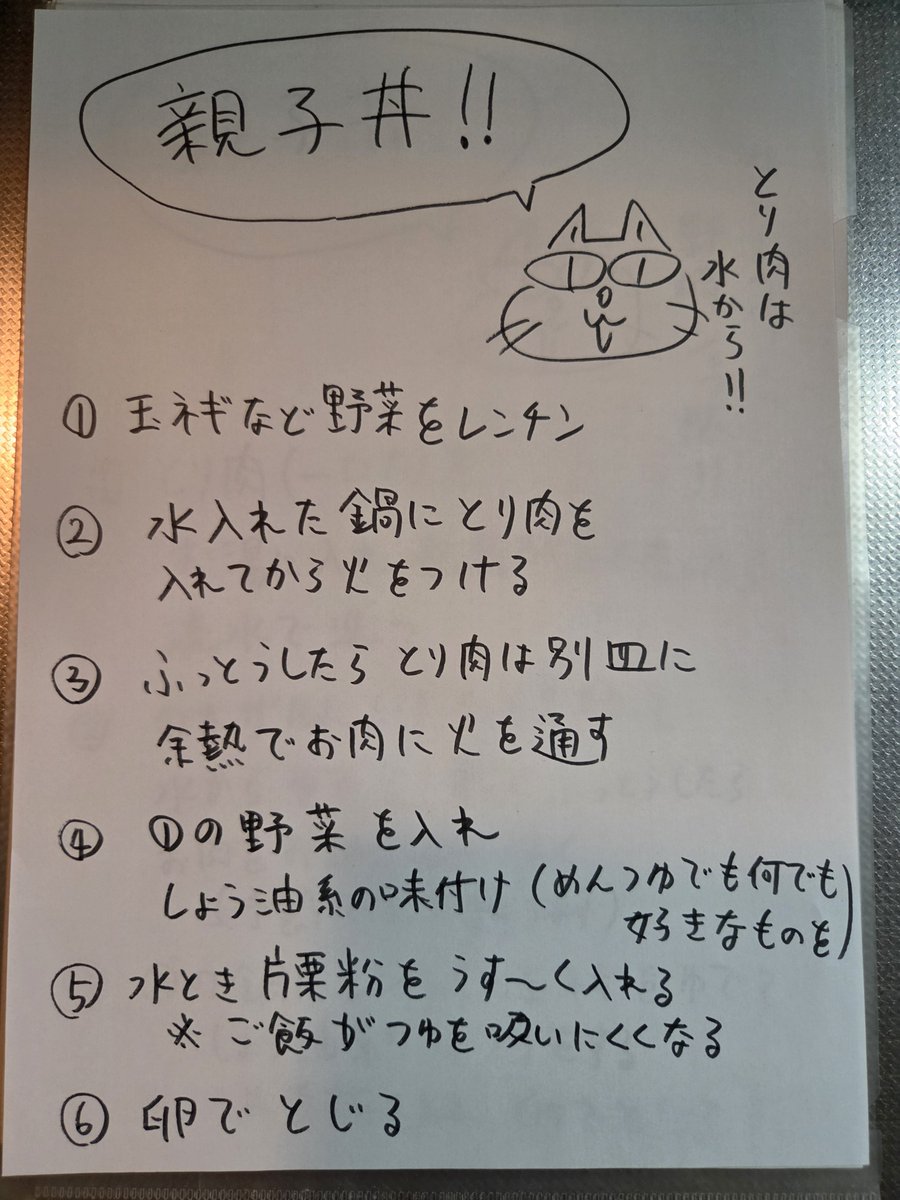 親子丼!!
とり肉は
水から!!
① 玉ネギなど野菜をレンチン
② 水入れた鍋にとり肉を
入れてから火をつける
③ ふっとうしたら とり肉は別皿に
余熱でお肉に火を通す
④ ①の野菜を入れ
しょう油系の味付け(めんつゆでも何でも
好きなものを)
⑤ 水とき片栗粉をうす〜く入れる
※ ご飯がつゆを吸いにくくなる
⑥ 卵でとじる